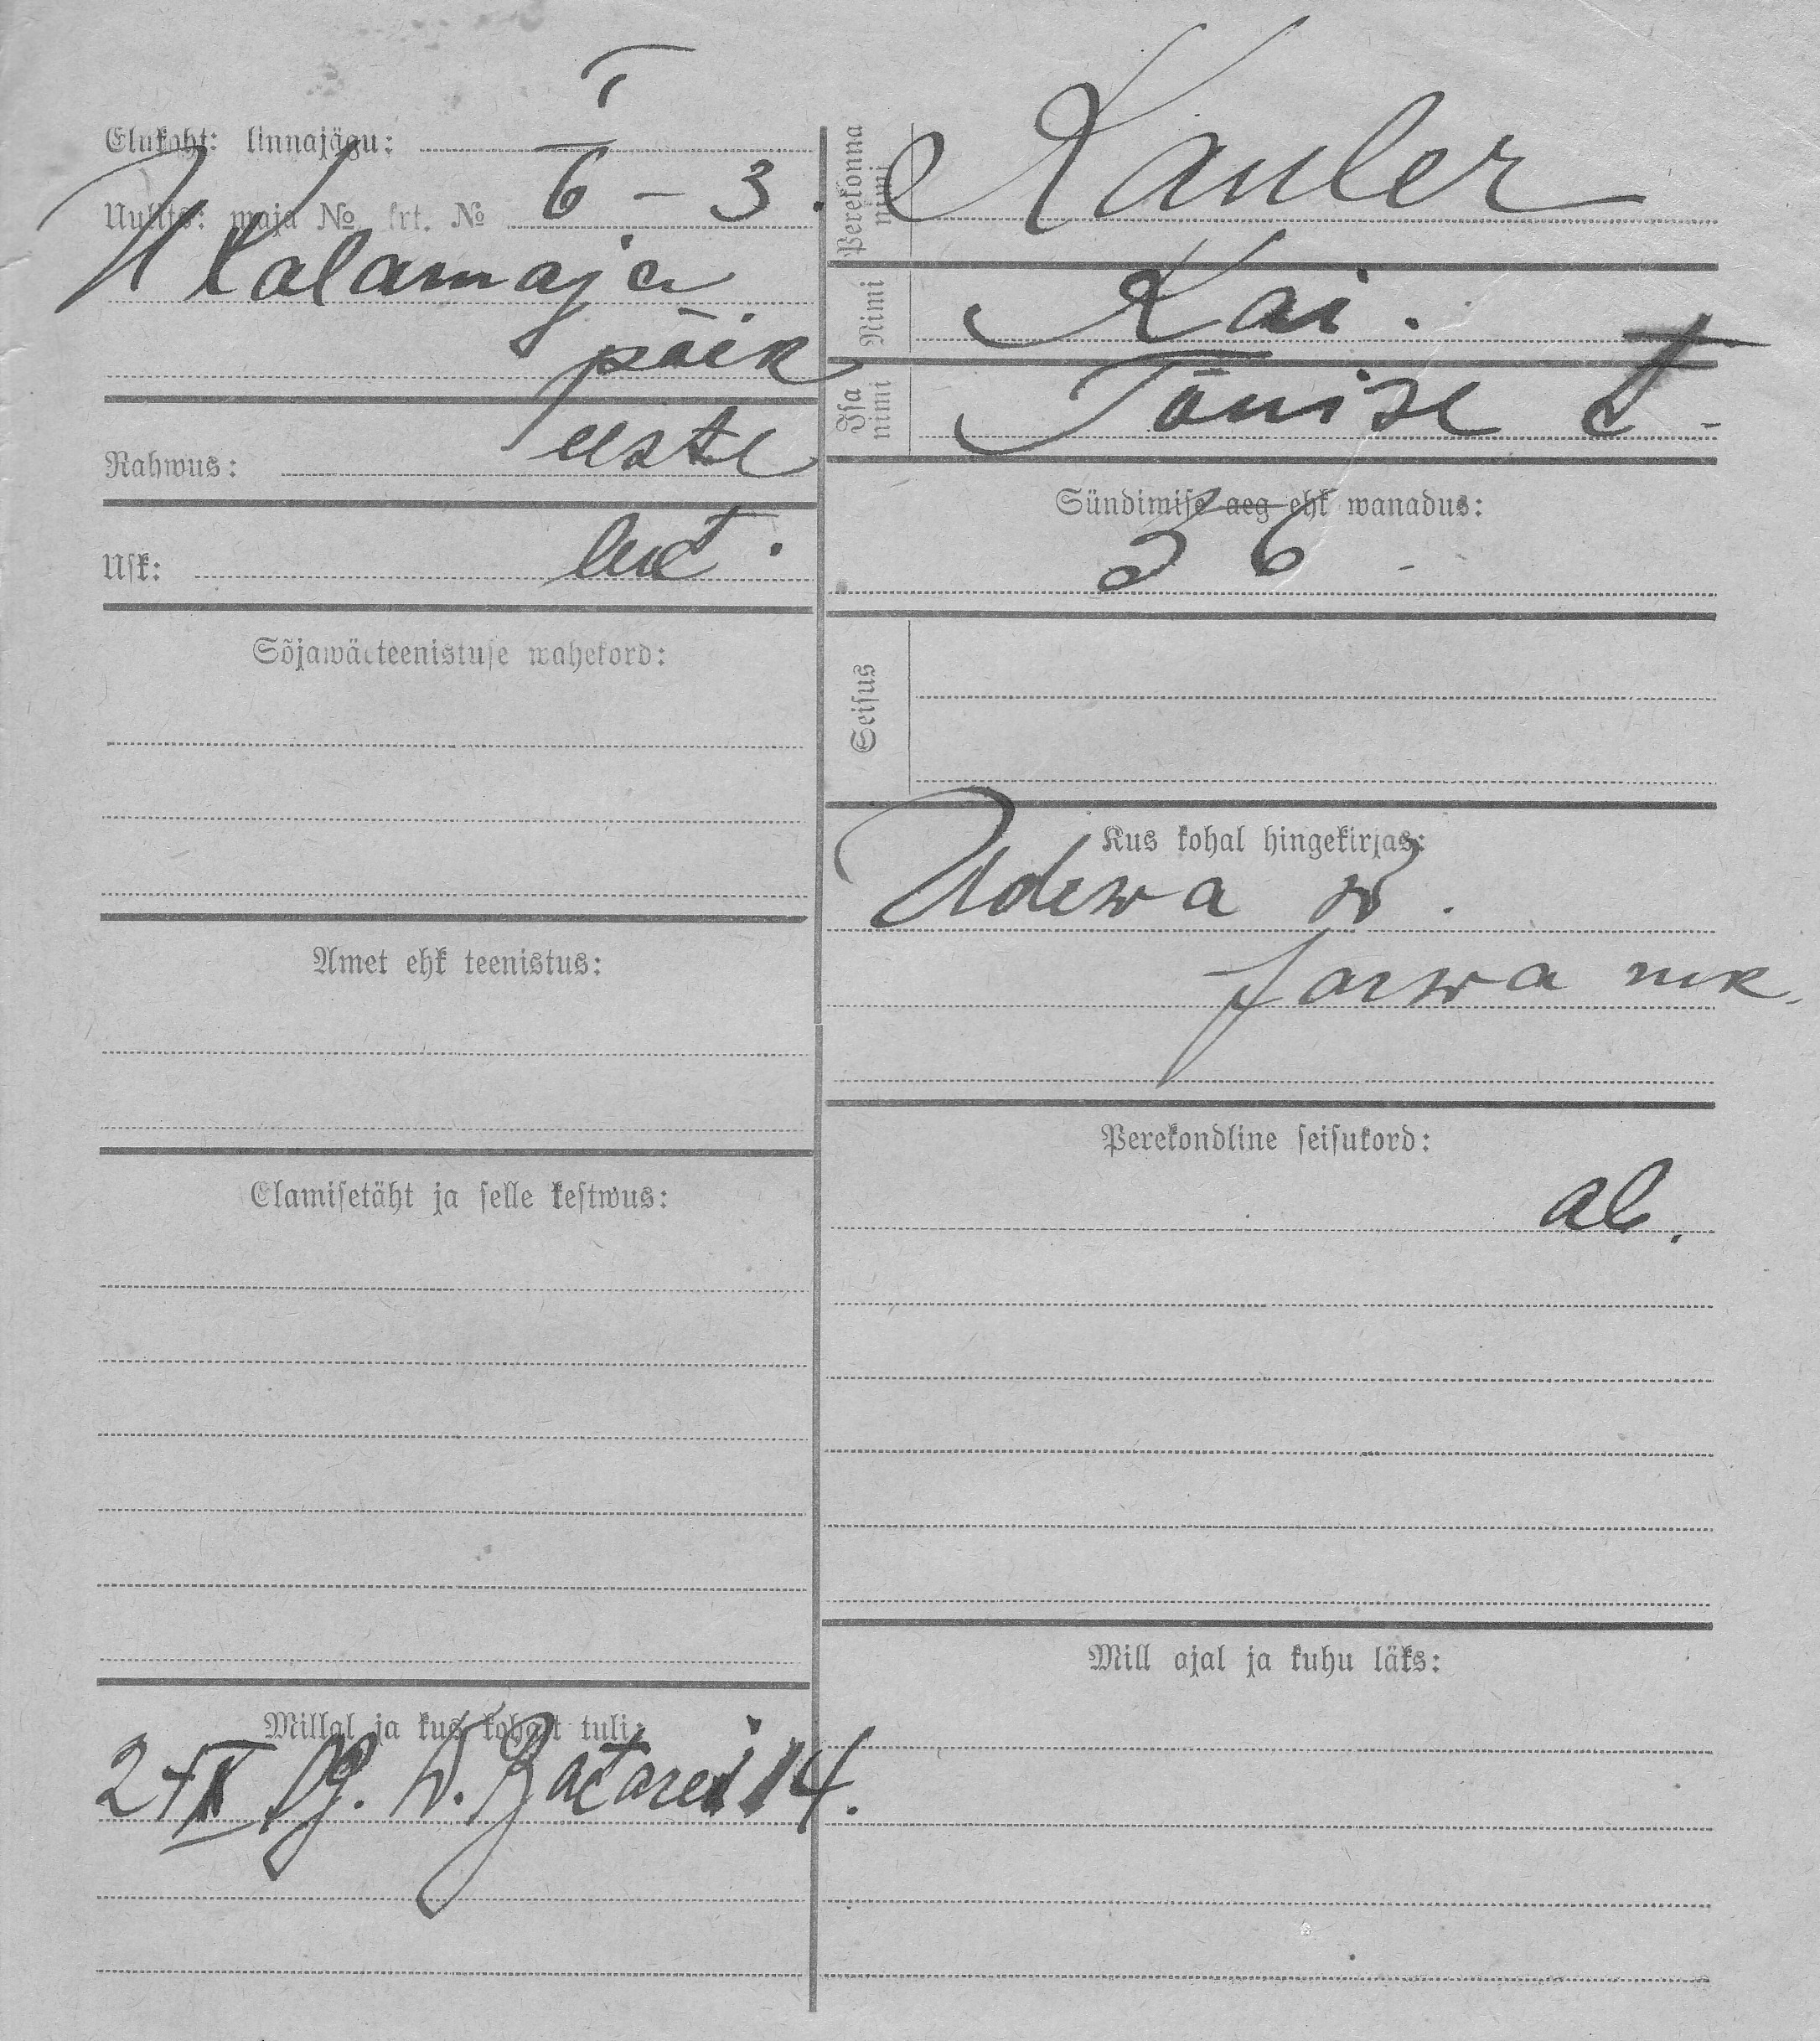 I
Elukoht: linnajägu:
6 - 3.
Uulits: maja № krt. №
Kalamaja
põik
Rahwus: eeste
Usk: lut.
Sõjawäeteenistuse wahekord:
Amet ehk teenistus:
Elamisetäht ja selle kestwus:
Millal ja kus kohast tuli:
19. W. Batarei 14.
Perekonna nimi Kauler
Nimi Kai.
Isa nimi Tõnise t.
Sündimise aeg ehk wanadus:
36
Seisus
Kus kohal hingekirjas:
Udewa w.
Jarwa mk.
Perekondline seisukord:
ab.
Mill ajal ja kuhu läks: